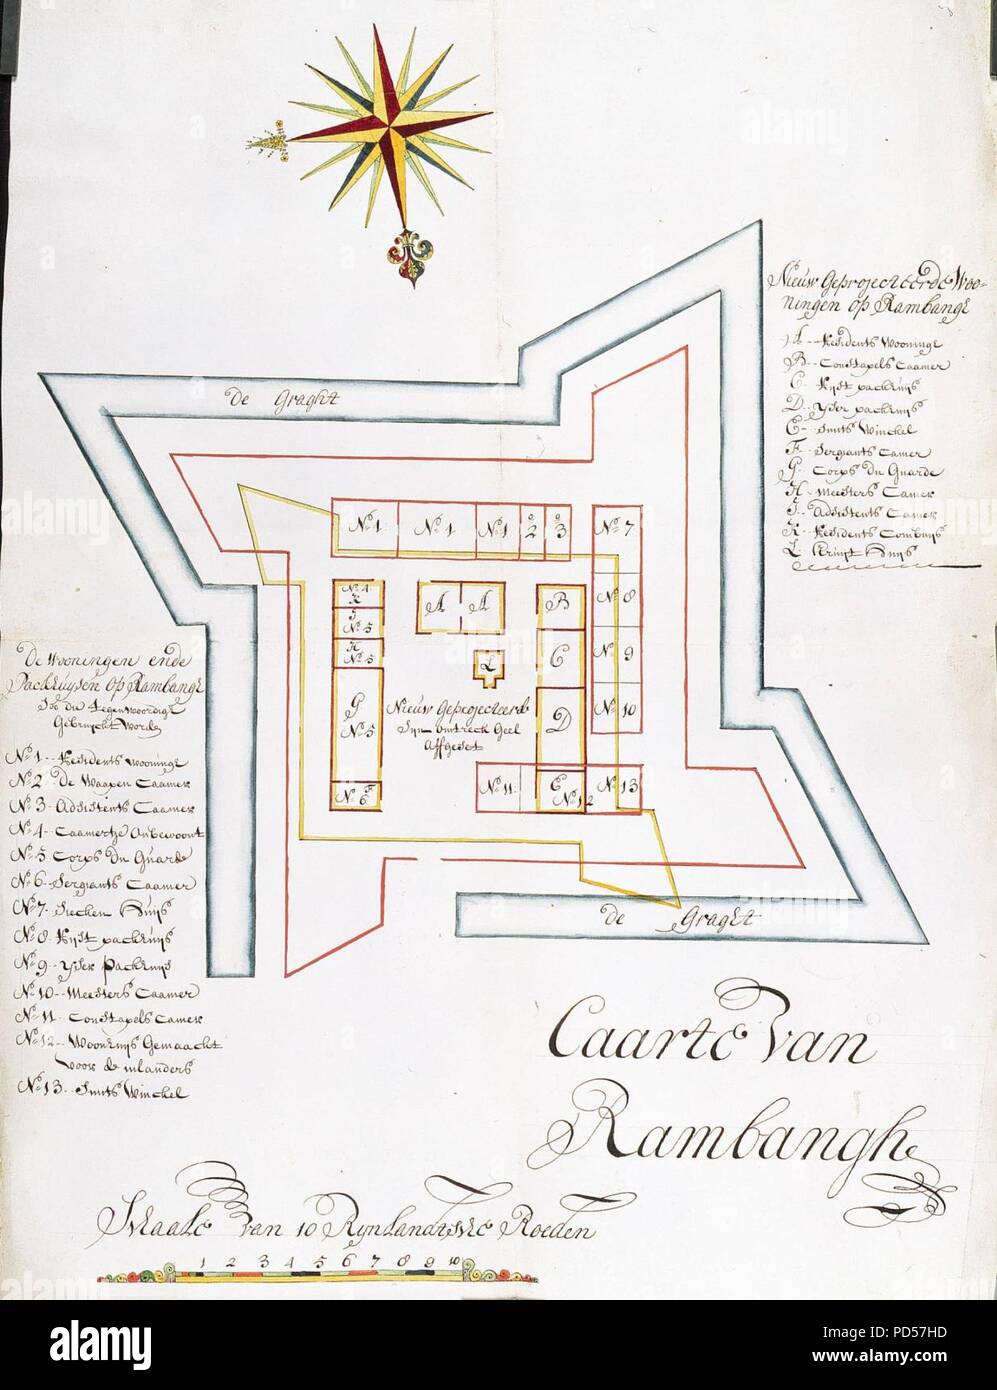 De Graght
Nieuw Geprojecteerde Woo-
ningen op Rambange
A -- Residents Wooninge
B -- Constapels Caamer
C - Rijst packuijs
D - Yser packuijs
E - Smits Winckel
F - Sergiants Camer
G - Corps Du Guarde
H - Meesters Camer
J - Adsistents Camer
K - Residents Combuijs
L - Kruijt Huijs
No 1
No 1
No 1
No 2
No 3
No 7
No 4
K
J
No 5
H
No 5
A
A
B
No 8
L
C
No 9
G
No 5
Nieuw Geprojecteerde
Sijn omtreck Geel
Affgeset
D
No 10
No 6
F
No 11
E
No 12
No 13
De Wooningen ende
Packhuysen op Rambange
Soo du Tegenwoordigh
Gebruijcht Worde
No 1 -- Residents wooninge
No 2 - De Waapen Caamer
No 3 - Adsistents Caamer
No 4 - Caamertje Onbewoont
No 5 - Corps Du Guarde
No 6 - Sergiants Caamer
No 7 - Siecken Huijs
No 8 - Rijst packuijs
No 9 - Yser Packuijs
No 10 -- Meesters Caamer
No 11 - Constapels Camer
No 12 -- Woonhuijs Gemaackt
voor de inlanders
No 13 -- Smits Winckel
De Graght
Caarte Van
Rambanghe
Schaale van 10 Rijnlandtsche Roeden
1 2 3 4 5 6 7 8 9 10
alamy
Image ID: PD57HD
www.alamy.com